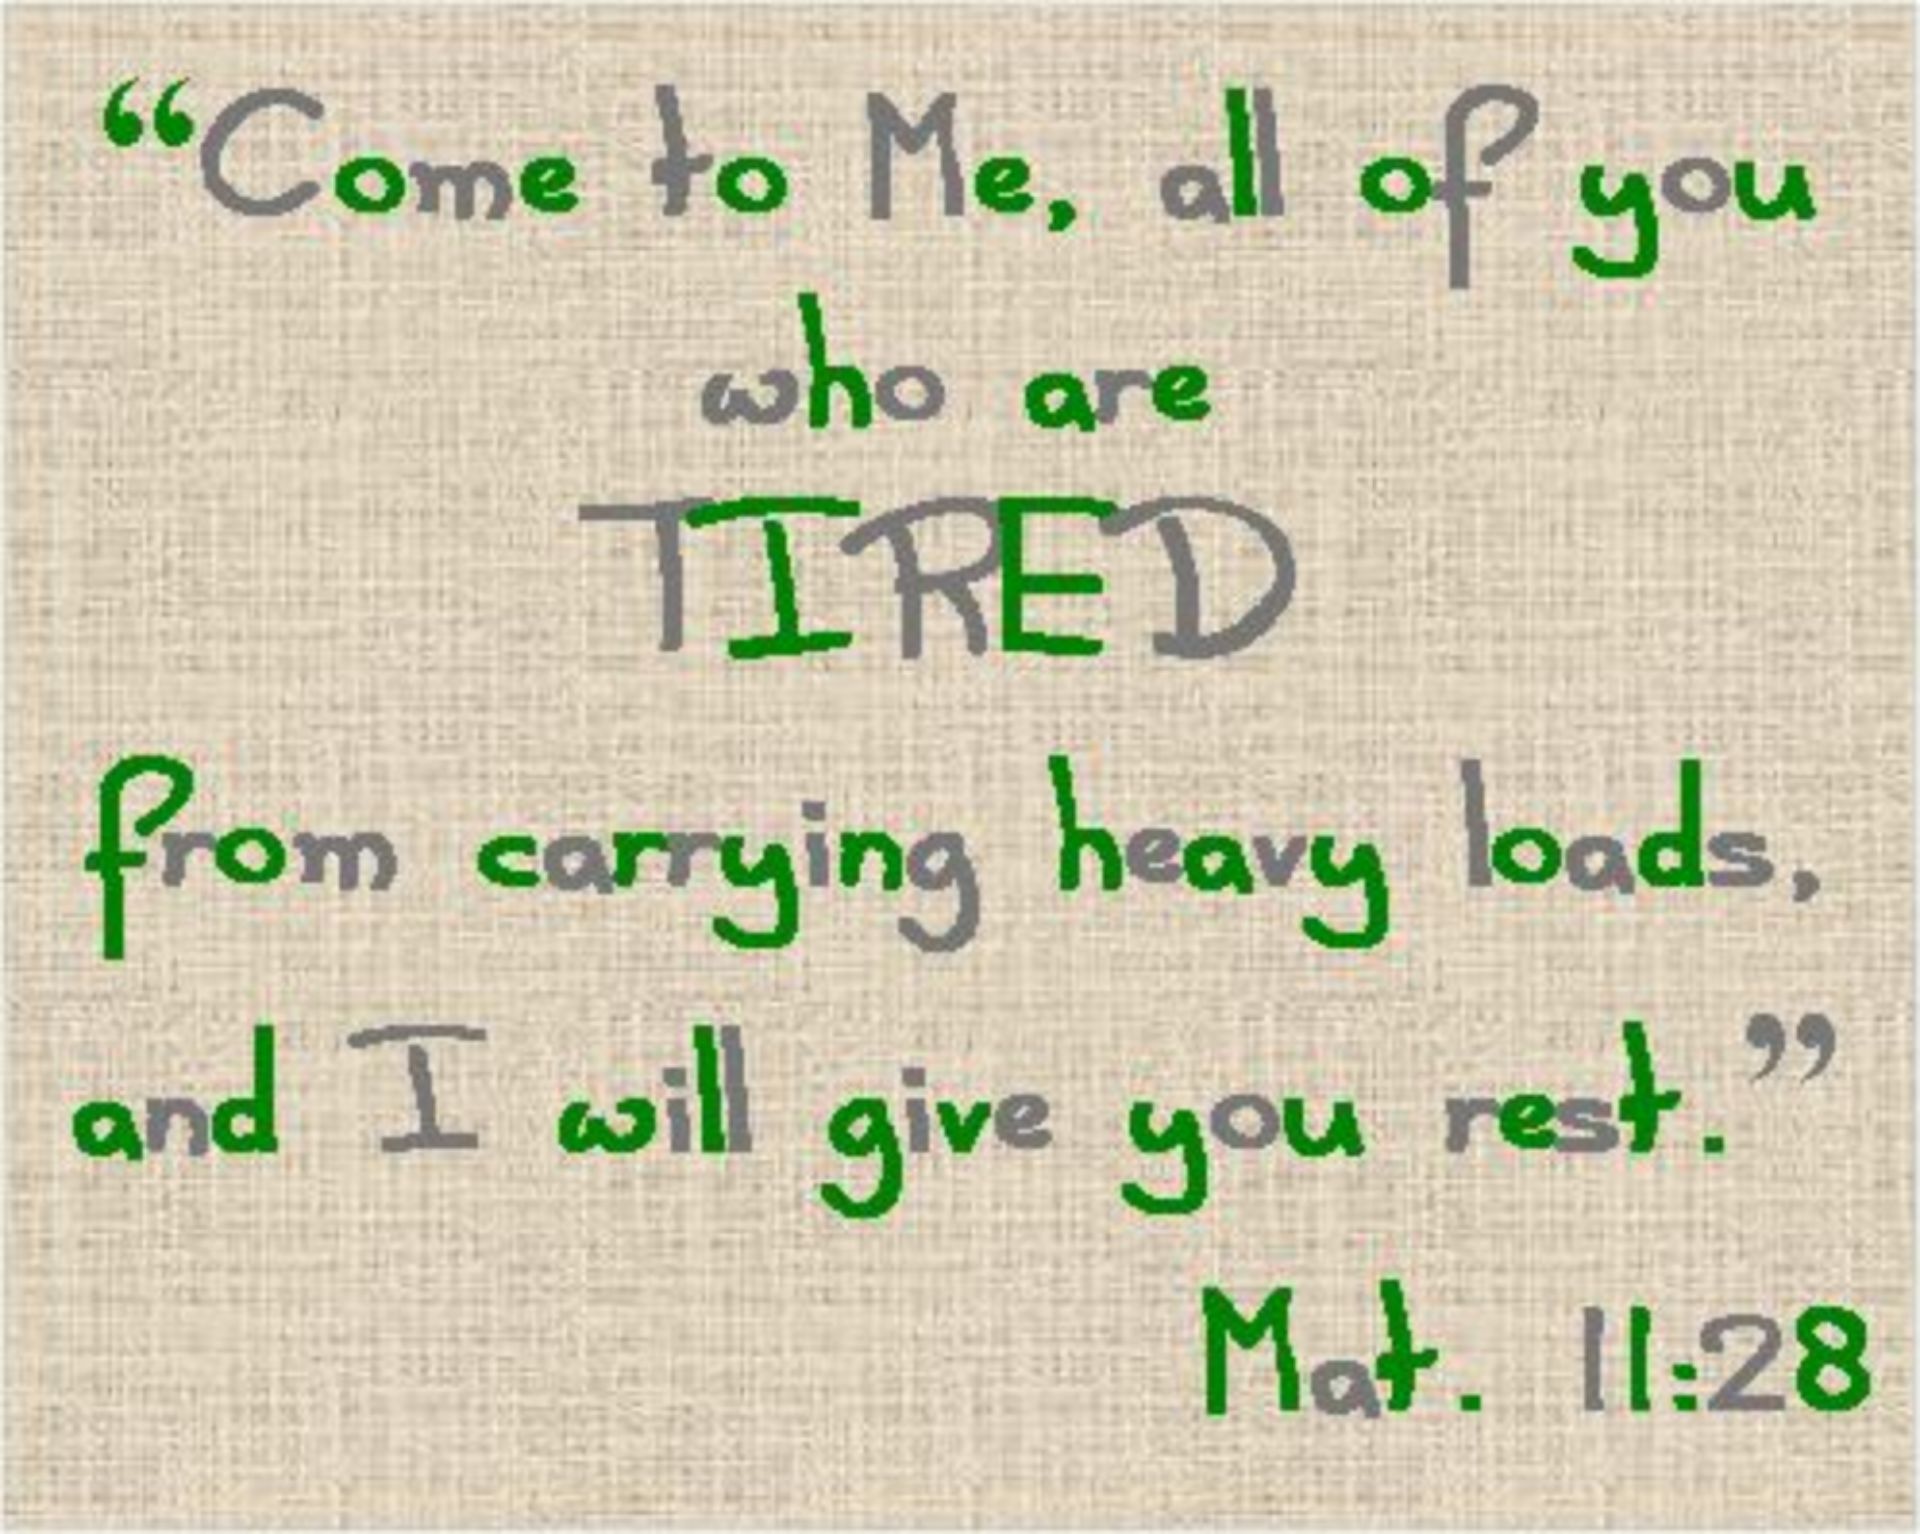 “Come to Me, all of you
who are
TIRED
from carrying heavy loads,
and I will give you rest.”
Mat. 11:28